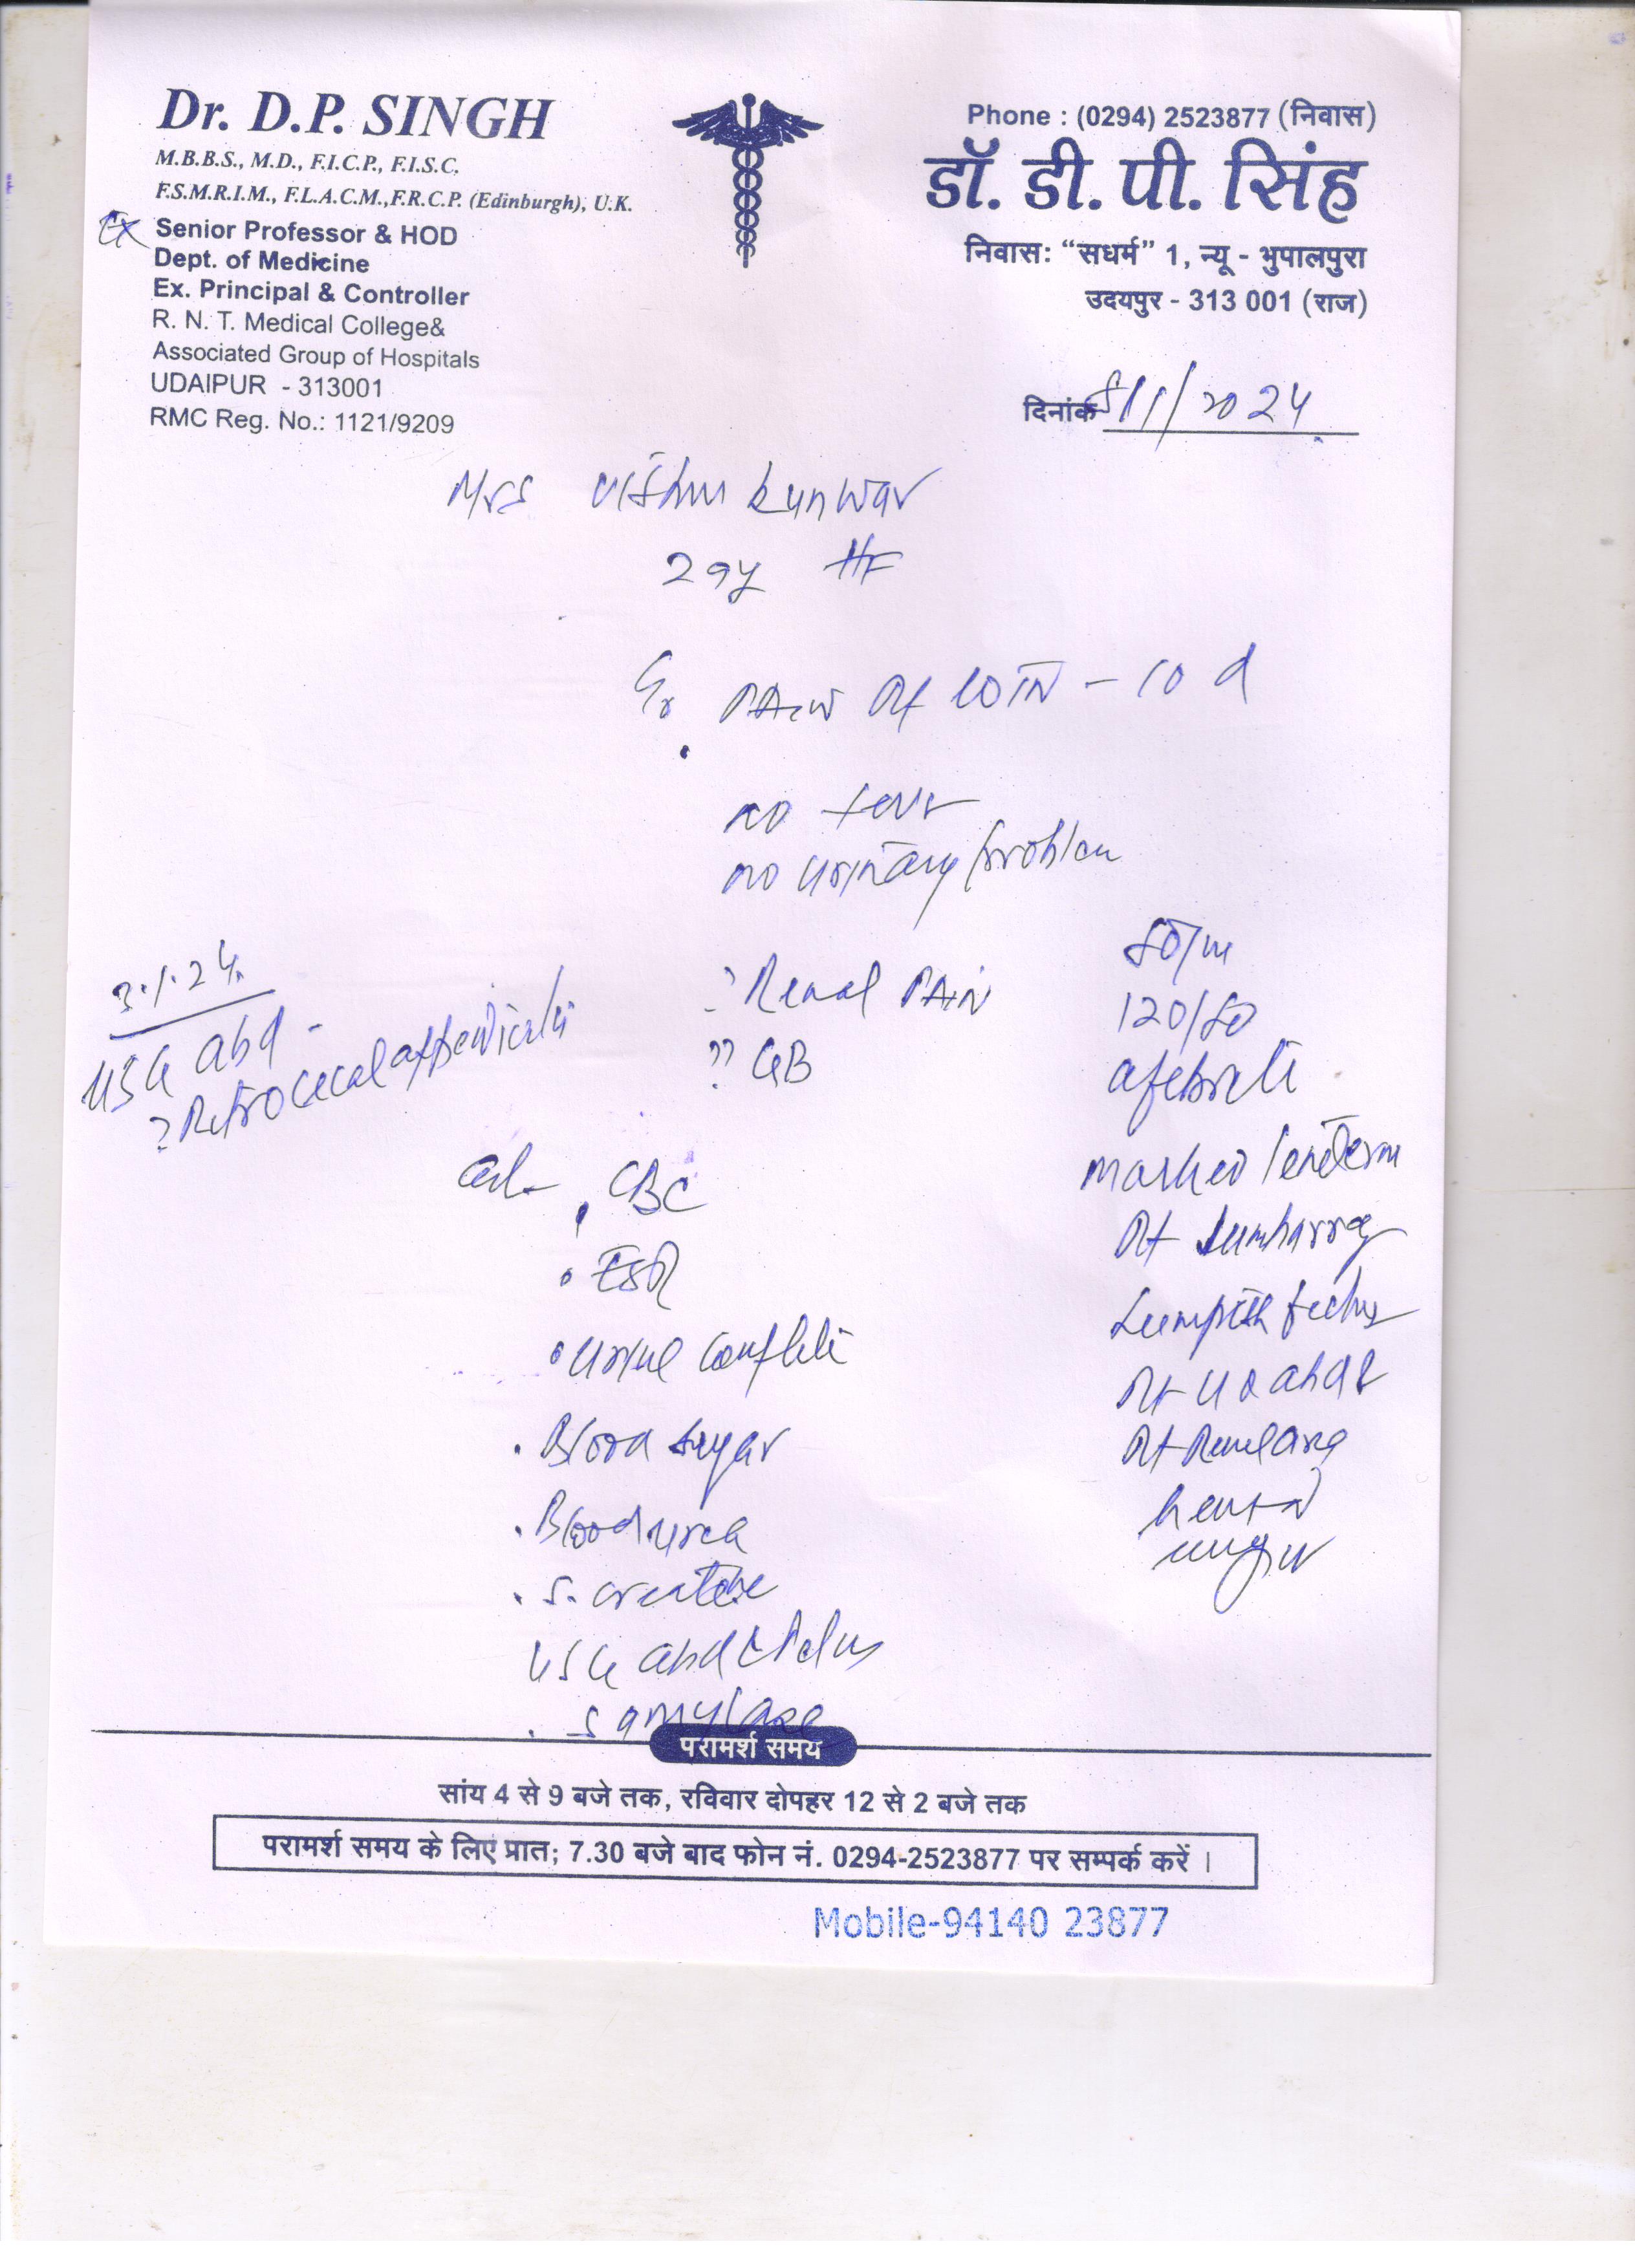 Dr. D.P. SINGH
M.B.B.S., M.D., F.I.C.P., F.I.S.C.
F.S.M.R.I.M., F.L.A.C.M.,F.R.C.P. (Edinburgh), U.K.
Ex Senior Professor & HOD
Dept. of Medicine
Ex. Principal & Controller
R. N. T. Medical College&
Associated Group of Hospitals
UDAIPUR - 313001
RMC Reg. No.: 1121/9209
Phone : (0294) 2523877 (निवास)
डॉ. डी. पी. सिंह
निवास: “सधर्म” 1, न्यू - भुपालपुरा
उदयपुर - 313 001 (राज)
दिनांक 8/1/2024
Mrs Vishnu kunwar
29y HF
PAIN Rt LOIN - 10 d
no fever
no urinary problem
? Renal PAIN
?? GB
3.1.24.
USG abd -
? Retrocecal appendicitis
80/m
120/80
afebrile
marked
Rt lumbar
Rt abd
Rt Renal area
CBC
• ESR
• urine complete
. Blood sugar
. Blood urea
. S. creatine
USG abd Pelvis
. S amylase
परामर्श समय
सांय 4 से 9 बजे तक, रविवार दोपहर 12 से 2 बजे तक
परामर्श समय के लिए प्रात; 7.30 बजे बाद फोन नं. 0294-2523877 पर सम्पर्क करें ।
Mobile-94140 23877